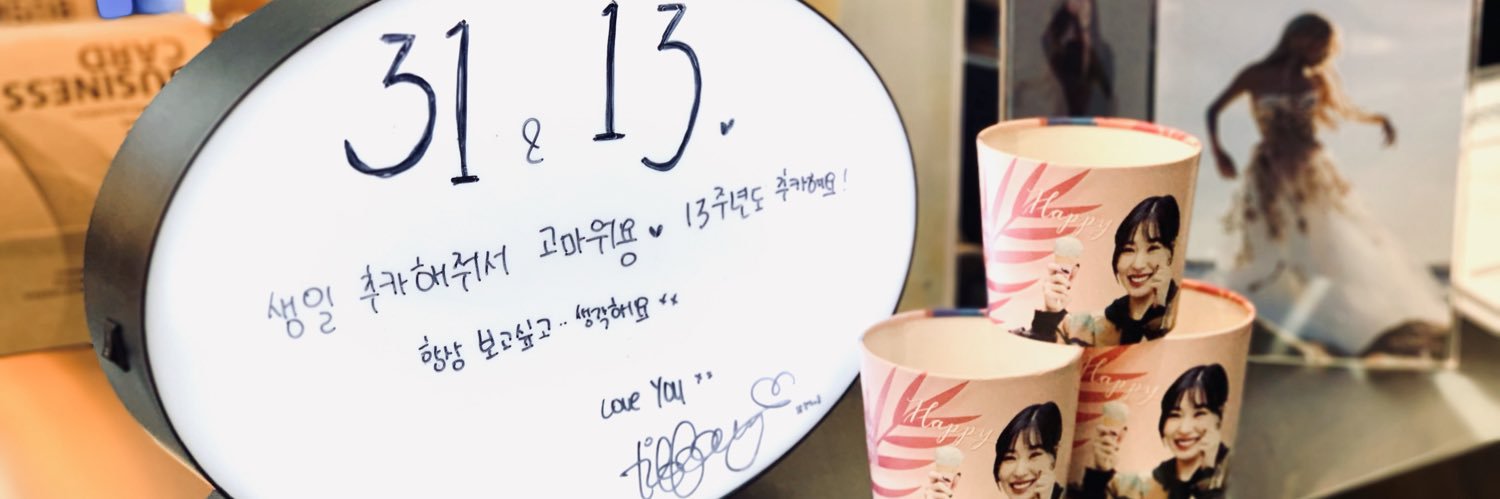 BUSINESS
CARD
31 & 13.
생일 추카해줘서 고마워용 ♥ 13주년도 추카해요!
항상 보고싶고.. 생각해요
Love you
tiffany
Happy
Happy
Happy